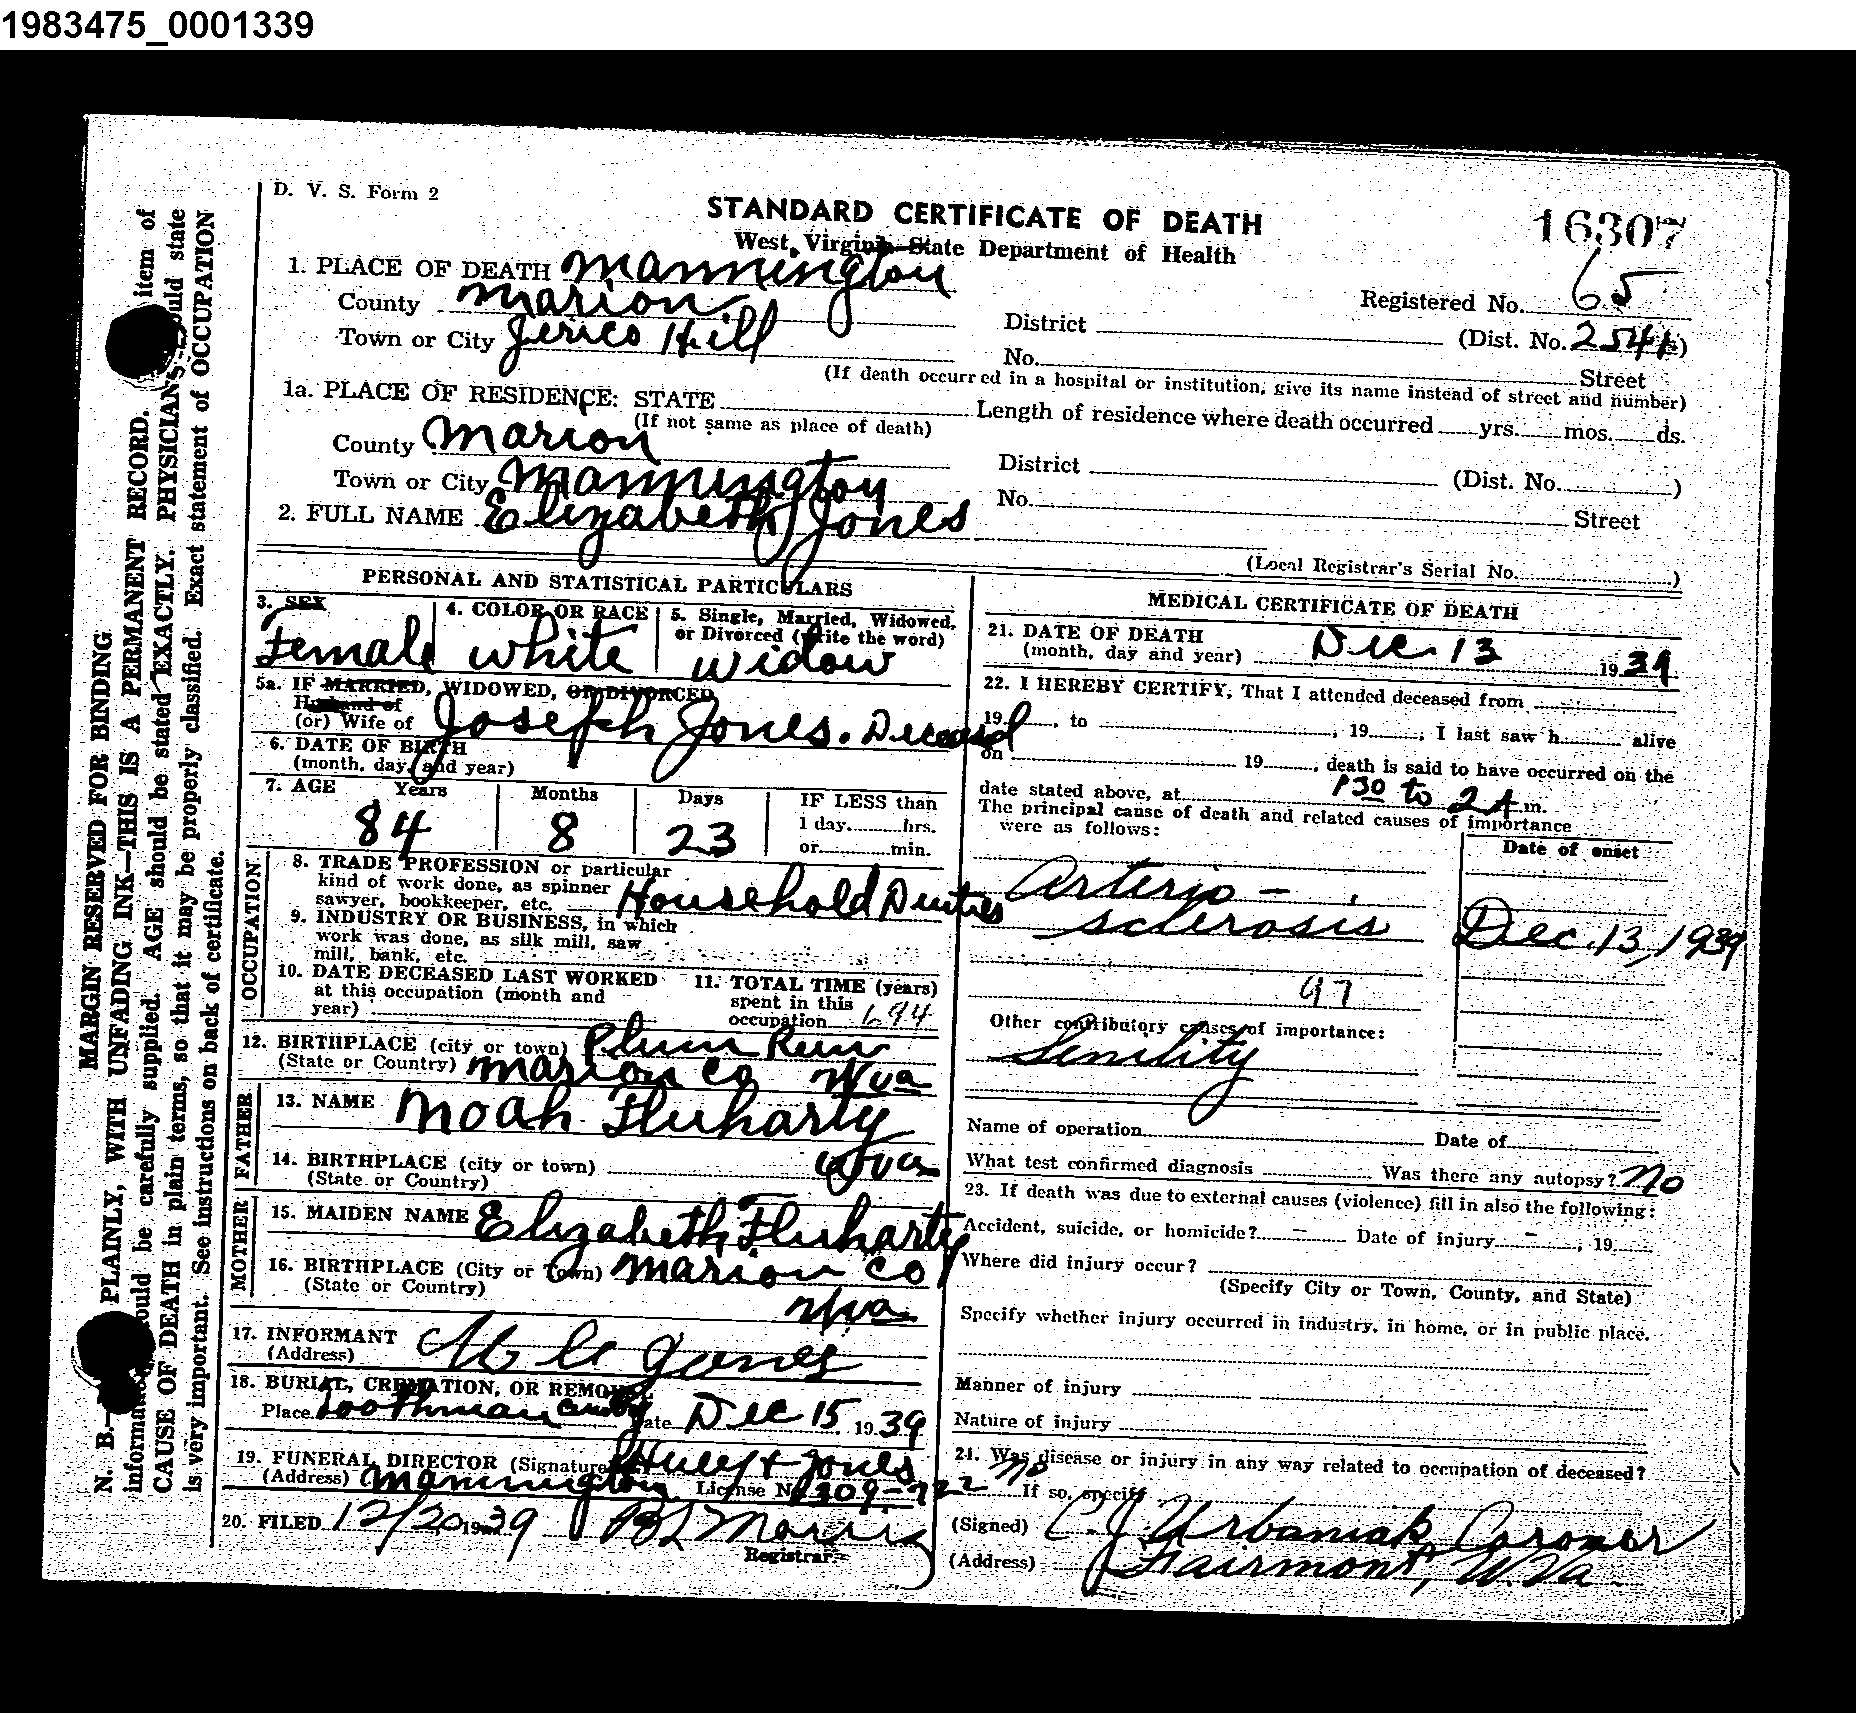 1983475_0001339
D. V. S. Form 2
STANDARD CERTIFICATE OF DEATH
16307
West Virginia State Department of Health
1. PLACE OF DEATH Mannington
Registered No. 65
County Marion
District (Dist. No. 2541)
Town or City Jerico Hill
No. Street
(If death occurred in a hospital or institution, give its name instead of street and number)
1a. PLACE OF RESIDENCE: STATE
(If not same as place of death)
Length of residence where death occurred yrs. mos. ds.
County Marion
District (Dist. No. )
Town or City Mannington
No. Street
2. FULL NAME Elizabeth Jones
(Local Registrar's Serial No. )
PERSONAL AND STATISTICAL PARTICULARS
3. SEX
Female
4. COLOR OR RACE
White
5. Single, Married, Widowed,
or Divorced (write the word)
Widow
5a. IF MARRIED, WIDOWED, OR DIVORCED
Husband of
(or) Wife of Joseph Jones. Deceased
6. DATE OF BIRTH
(month, day, and year)
7. AGE Years Months Days IF LESS than
84 8 23 1 day hrs.
or min.
OCCUPATION
8. TRADE PROFESSION or particular
kind of work done, as spinner
sawyer, bookkeeper, etc. Household Duties
9. INDUSTRY OR BUSINESS, in which
work was done, as silk mill, saw
mill, bank, etc.
10. DATE DECEASED LAST WORKED
at this occupation (month and
year)
11. TOTAL TIME (years)
spent in this
occupation
12. BIRTHPLACE (city or town) Plum Run
(State or Country) Marion Co W va
FATHER
13. NAME Noah Fluharty
14. BIRTHPLACE (city or town) W va
(State or Country)
MOTHER
15. MAIDEN NAME Elizabeth Fluharty
16. BIRTHPLACE (City or Town) Marion Co
(State or Country)
W va
17. INFORMANT Jones
(Address)
18. BURIAL, CREMATION, OR REMOVAL
Place Toothman Date Dec 15 1939
19. FUNERAL DIRECTOR (Signature) & Jones
(Address) Mannington License No.
20. FILED 12/20 1939 Morris
Registrar
MEDICAL CERTIFICATE OF DEATH
21. DATE OF DEATH
(month, day and year) Dec. 13 1939
22. I HEREBY CERTIFY, That I attended deceased from
19 , to , 19 ; I last saw h alive
on 19 , death is said to have occurred on the
date stated above, at 130 to 2 A m.
The principal cause of death and related causes of importance
were as follows:
Date of onset
Arterio-
sclerosis Dec. 13, 1939
97
Other contributory causes of importance:
Senility
Name of operation Date of
What test confirmed diagnosis Was there any autopsy? No
23. If death was due to external causes (violence) fill in also the following:
Accident, suicide, or homicide? - Date of injury - , 19
Where did injury occur?
(Specify City or Town, County, and State)
Specify whether injury occurred in industry, in home, or in public place.
Manner of injury
Nature of injury
24. Was disease or injury in any way related to occupation of deceased?
No If so, specify
(Signed) C J Urbaniak Coroner
(Address) Fairmont, W. Va.
MARGIN RESERVED FOR BINDING
N. B. PLAINLY, WITH UNFADING INK—THIS IS A PERMANENT RECORD. item of
should be carefully supplied. AGE should be stated EXACTLY. PHYSICIANS should state
CAUSE OF DEATH in plain terms, so that it may be properly classified. Exact statement of OCCUPATION
is very important. See instructions on back of certificate.